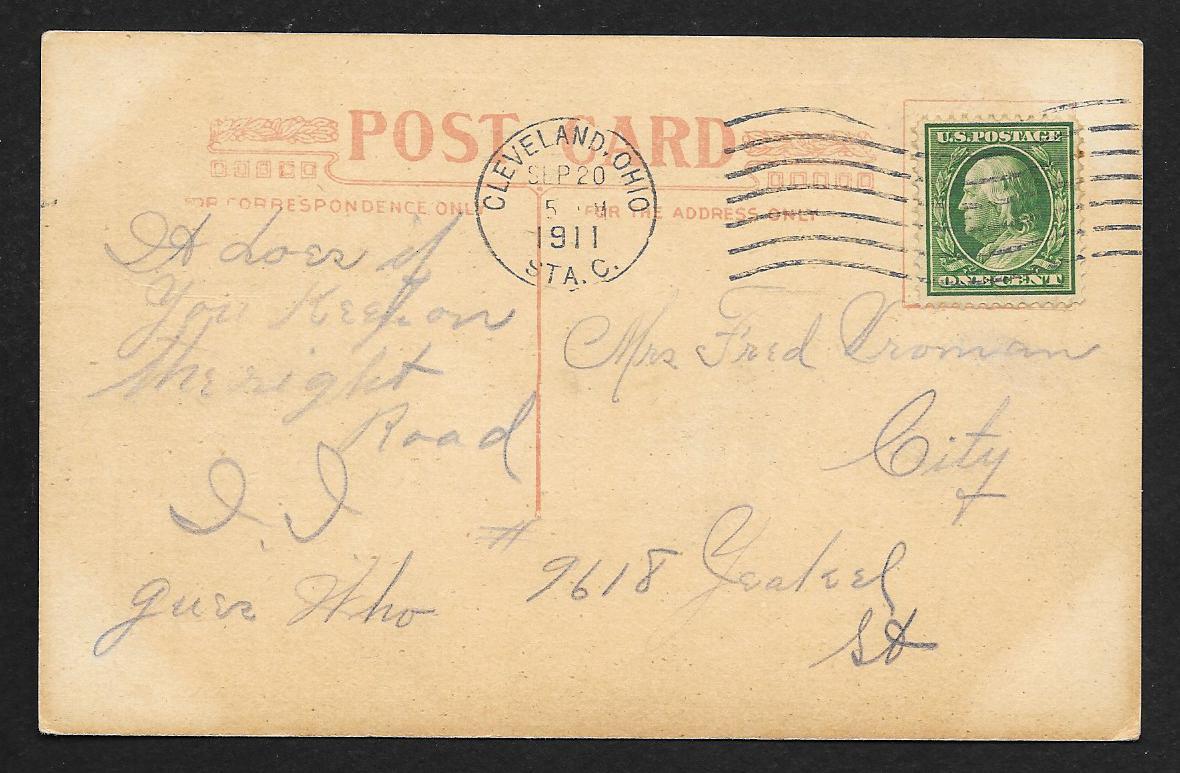 POST CARD
FOR CORRESPONDENCE ONLY
FOR THE ADDRESS ONLY
CLEVELAND, OHIO
SEP 20
5 M
1911
STA. C.
U.S. POSTAGE
ONE CENT
It does if
You Keep on
the right
Road
I. I
guess Who
Mrs Fred Vroman
City
# 9618 Yeakel
St